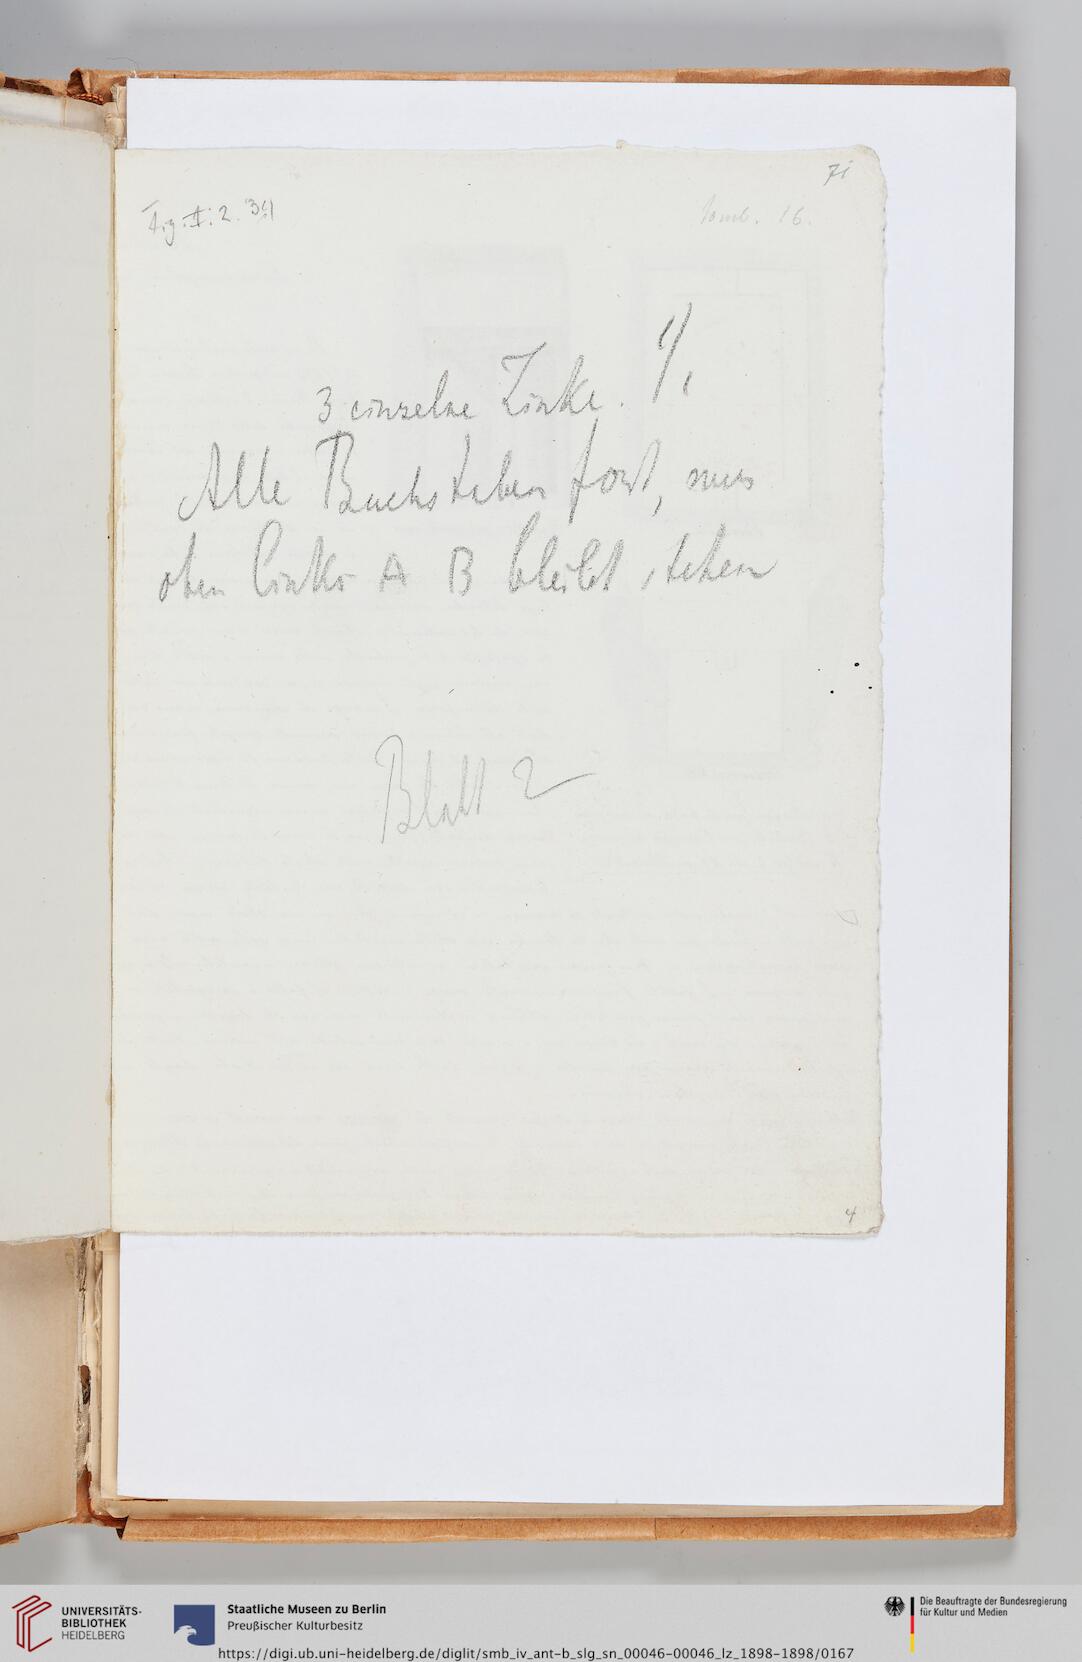 71
I.g.II.2.34
Lomb. 16.
3 einzelne Zinke. 1/1
Alle Buchstaben fort, nur
oben links A B bleibt stehen
Blatt 2
4
UNIVERSITÄTS-
BIBLIOTHEK
HEIDELBERG
Staatliche Museen zu Berlin
Preußischer Kulturbesitz
Die Beauftragte der Bundesregierung
für Kultur und Medien
https://digi.ub.uni-heidelberg.de/diglit/smb_iv_ant-b_slg_sn_00046-00046_lz_1898-1898/0167